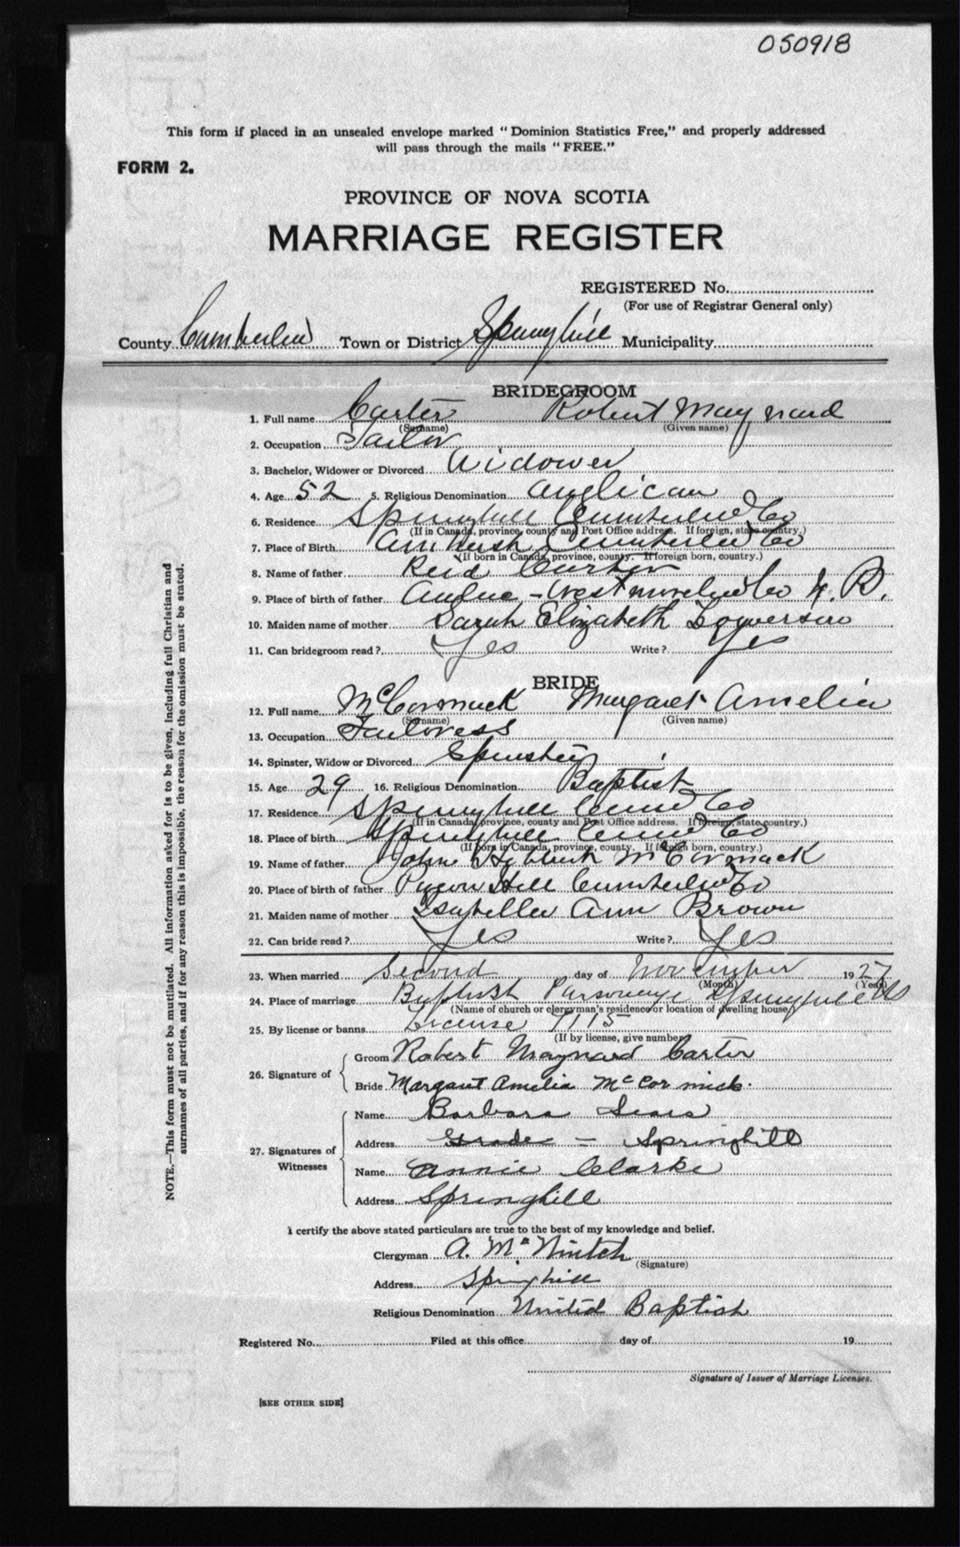 050918
This form if placed in an unsealed envelope marked "Dominion Statistics Free," and properly addressed
will pass through the mails "FREE."
FORM 2.
PROVINCE OF NOVA SCOTIA
MARRIAGE REGISTER
REGISTERED No.
(For use of Registrar General only)
County Cumberland Town or District Springhill Municipality
BRIDEGROOM
1. Full name Carter Robert Maynard
(Surname) (Given name)
2. Occupation Tailor
3. Bachelor, Widower or Divorced Widower
4. Age 52 5. Religious Denomination Anglican
6. Residence Springhill Cumberland Co
(If in Canada, province, county and Post Office address. If foreign, state country.)
7. Place of Birth Amherst Cumberland Co
(If born in Canada, province, county. If foreign born, country.)
8. Name of father Reid Carter
9. Place of birth of father Westmoreland Co N. B.
10. Maiden name of mother Sarah Elizabeth
11. Can bridegroom read? Yes Write? Yes
BRIDE
12. Full name McCormack Margaret Amelia
(Surname) (Given name)
13. Occupation Tailoress
14. Spinster, Widow or Divorced Spinster
15. Age 29 16. Religious Denomination Baptist
17. Residence Springhill Cumb Co
(If in Canada, province, county and Post Office address. If foreign, state country.)
18. Place of birth Springhill Cumb Co
(If born in Canada, province, county. If foreign born, country.)
19. Name of father John McCormack
20. Place of birth of father Hill Cumberland Co
21. Maiden name of mother Isabella Ann Brown
22. Can bride read? Yes Write? Yes
23. When married Second day of November 1927
(Month) (Year)
24. Place of marriage Baptist Parsonage Springhill NS
(Name of church or clergyman's residence or location of dwelling house)
25. By license or banns License 7115
(If by license, give number)
26. Signature of
Groom Robert Maynard Carter
Bride Margaret Amelia McCormick.
27. Signatures of Witnesses
Name Barbara Sears
Address Grade – Springhill
Name Annie Clarke
Address Springhill
I certify the above stated particulars are true to the best of my knowledge and belief.
Clergyman A. McNintch
(Signature)
Address Springhill
Religious Denomination United Baptist
Registered No. Filed at this office day of 19
Signature of Issuer of Marriage Licenses.
[SEE OTHER SIDE]
NOTE.—This form must not be mutilated. All information asked for is to be given, including full Christian and
surnames of all parties, and if for any reason this is impossible, the reason for the omission must be stated.